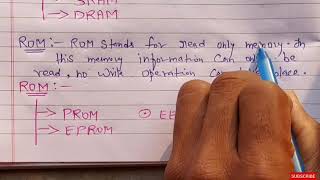 SRAM
DRAM
ROM :- ROM stands for read only memory. In
this memory information can only be
read, no write operation can place.
ROM :-
PROM
EPROM
SUBSCRIBE